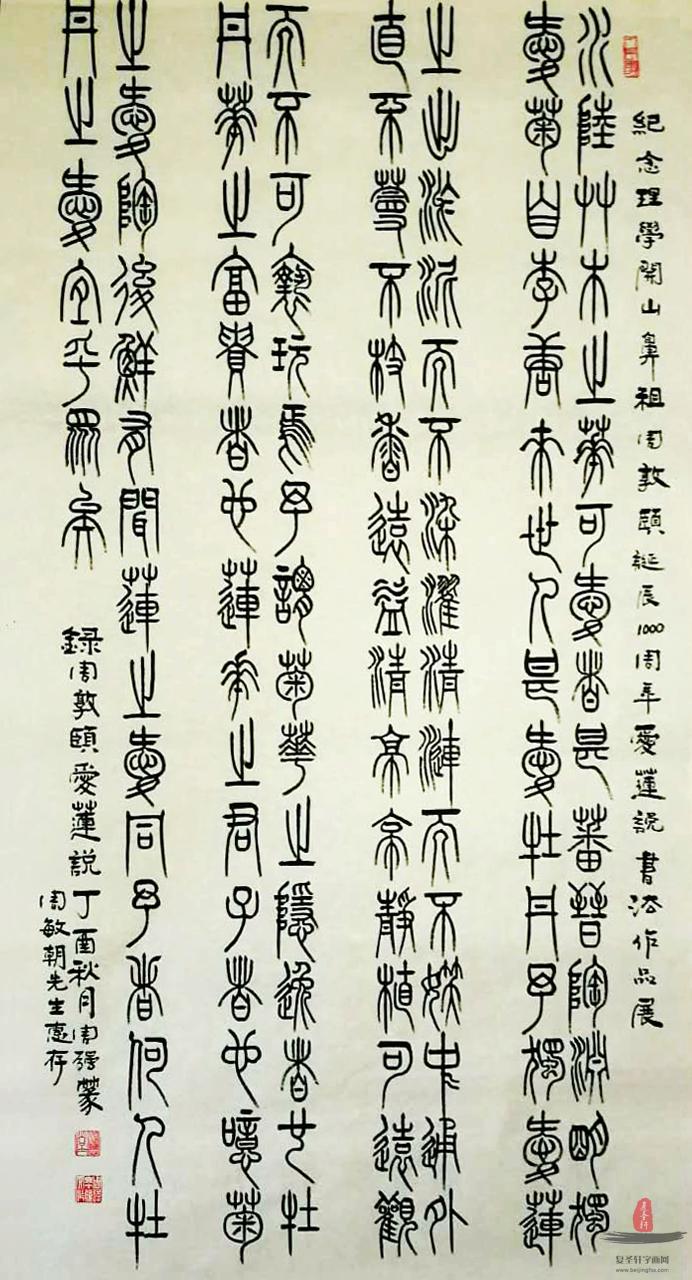 紀念理學開山鼻祖周敦頤誕辰1000周年愛蓮説書法作品展
水陸艸木之華可愛者甚蕃晉陶淵明獨
愛菊自李唐來世人甚愛牡丹予獨愛蓮
之出淤泥而不染濯清漣而不妖中通外
直不蔓不枝香遠益清亭亭靜植可遠觀
而不可褻玩焉予謂菊華之隱逸者也牡
丹華之富貴者也蓮華之君子者也噫菊
之愛陶後鮮有聞蓮之愛同予者何人牡
丹之愛宜乎眾矣
録周敦頤愛蓮説丁酉秋月周强篆
周敏朝先生惠存
复圣轩字画网
www.beijingfsx.com